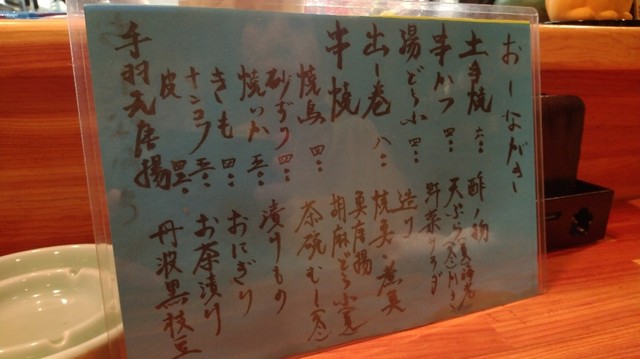 おしながき
土手焼 六〇〇
串かつ 四〇〇
湯どうふ 四〇〇
出し巻 八〇〇
串焼
焼鳥 四〇〇
砂ずり 四〇〇
焼いか 五〇〇
きも 四〇〇
ナンコツ 五〇〇
皮 四五〇
手羽元唐揚
酢ノ物
天ぷら
野菜サラダ
造り
焼魚・煮魚
魚唐揚
胡麻どうふ(夏)
茶碗むし(冬)
漬けもの
おにぎり
お茶漬け
丹波黒枝豆